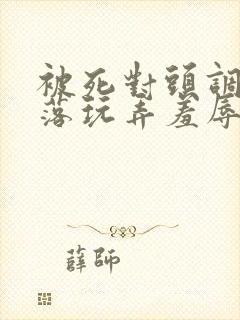 被死對頭調
落玩弄羞辱
薛師